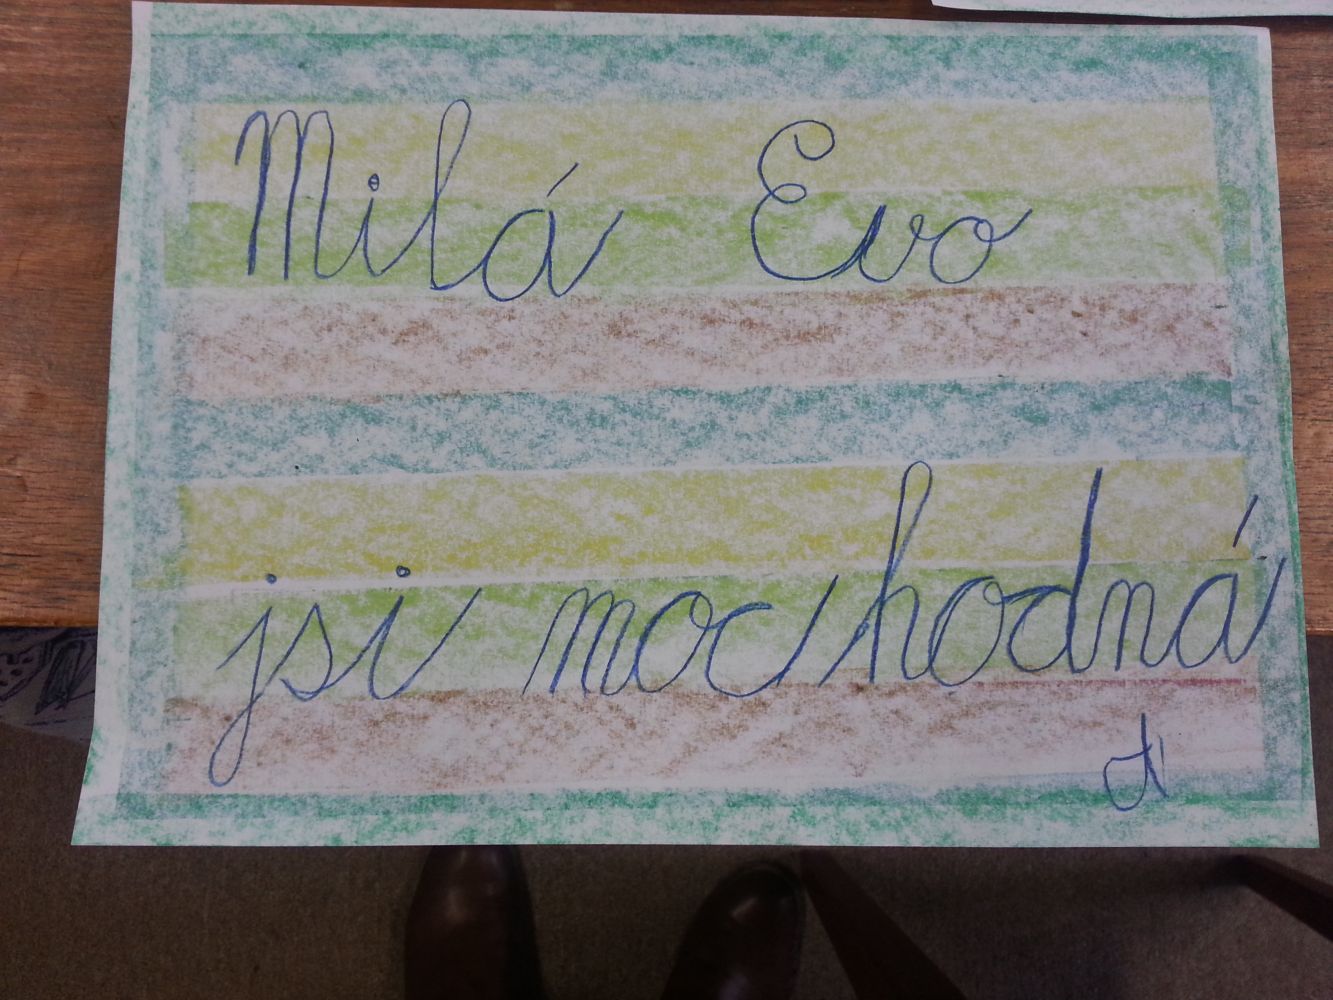 Milá Evo
jsi moc hodná